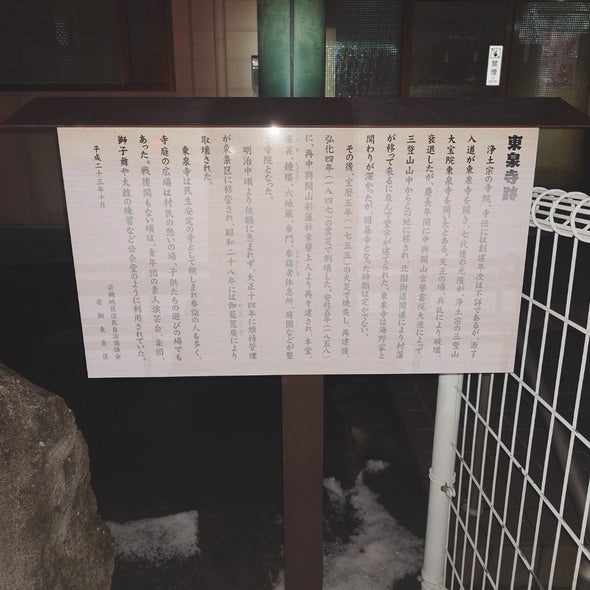 東泉寺跡
浄土宗の寺院。寺伝には創建年次は不詳であるが、源了
入道が東泉寺を開き、七代後の光隆が、浄土宗の三登山
大宝院東泉寺を開いたとある。天正の頃、兵乱により破壊、
衰退したが、慶長年間に中興開山玄誉雲悦大徳によって、
三登山山中からこの地に移され、北国街道開通により村落
が移って来るに及んで堂宇が建てられた。東泉寺は海野家と
関わりが深かったが、開基寺となった時期は定かでない。
その後、宝暦五年(一七五五)の火災で焼失し、再建後、
弘化四年(一八四七)の震災で倒壊した。安政五年(一八五八)
に、再中興開山
上人より再々建され、本堂、
庫裏、鐘楼、六地蔵、参門、参詣者休息所、庭園などが整
寺院となった。
明治中頃より住職に恵まれず、大正十四年に維持管理
が東条区に移管され、昭和二十八年には伽藍荒廃により
取壊された。
東泉寺は民生安定の寺として親しまれ参詣の人も多く、
寺庭の広場は村民の憩いの場、子供たちの遊びの場でも
あった。戦後間もない頃は、青年団の素人演芸会、楽団、
獅子舞や太鼓の練習など公会堂のように利用されていた。
平成二十三年十月
若槻地区住民自治協議会
若槻東条区
禁煙